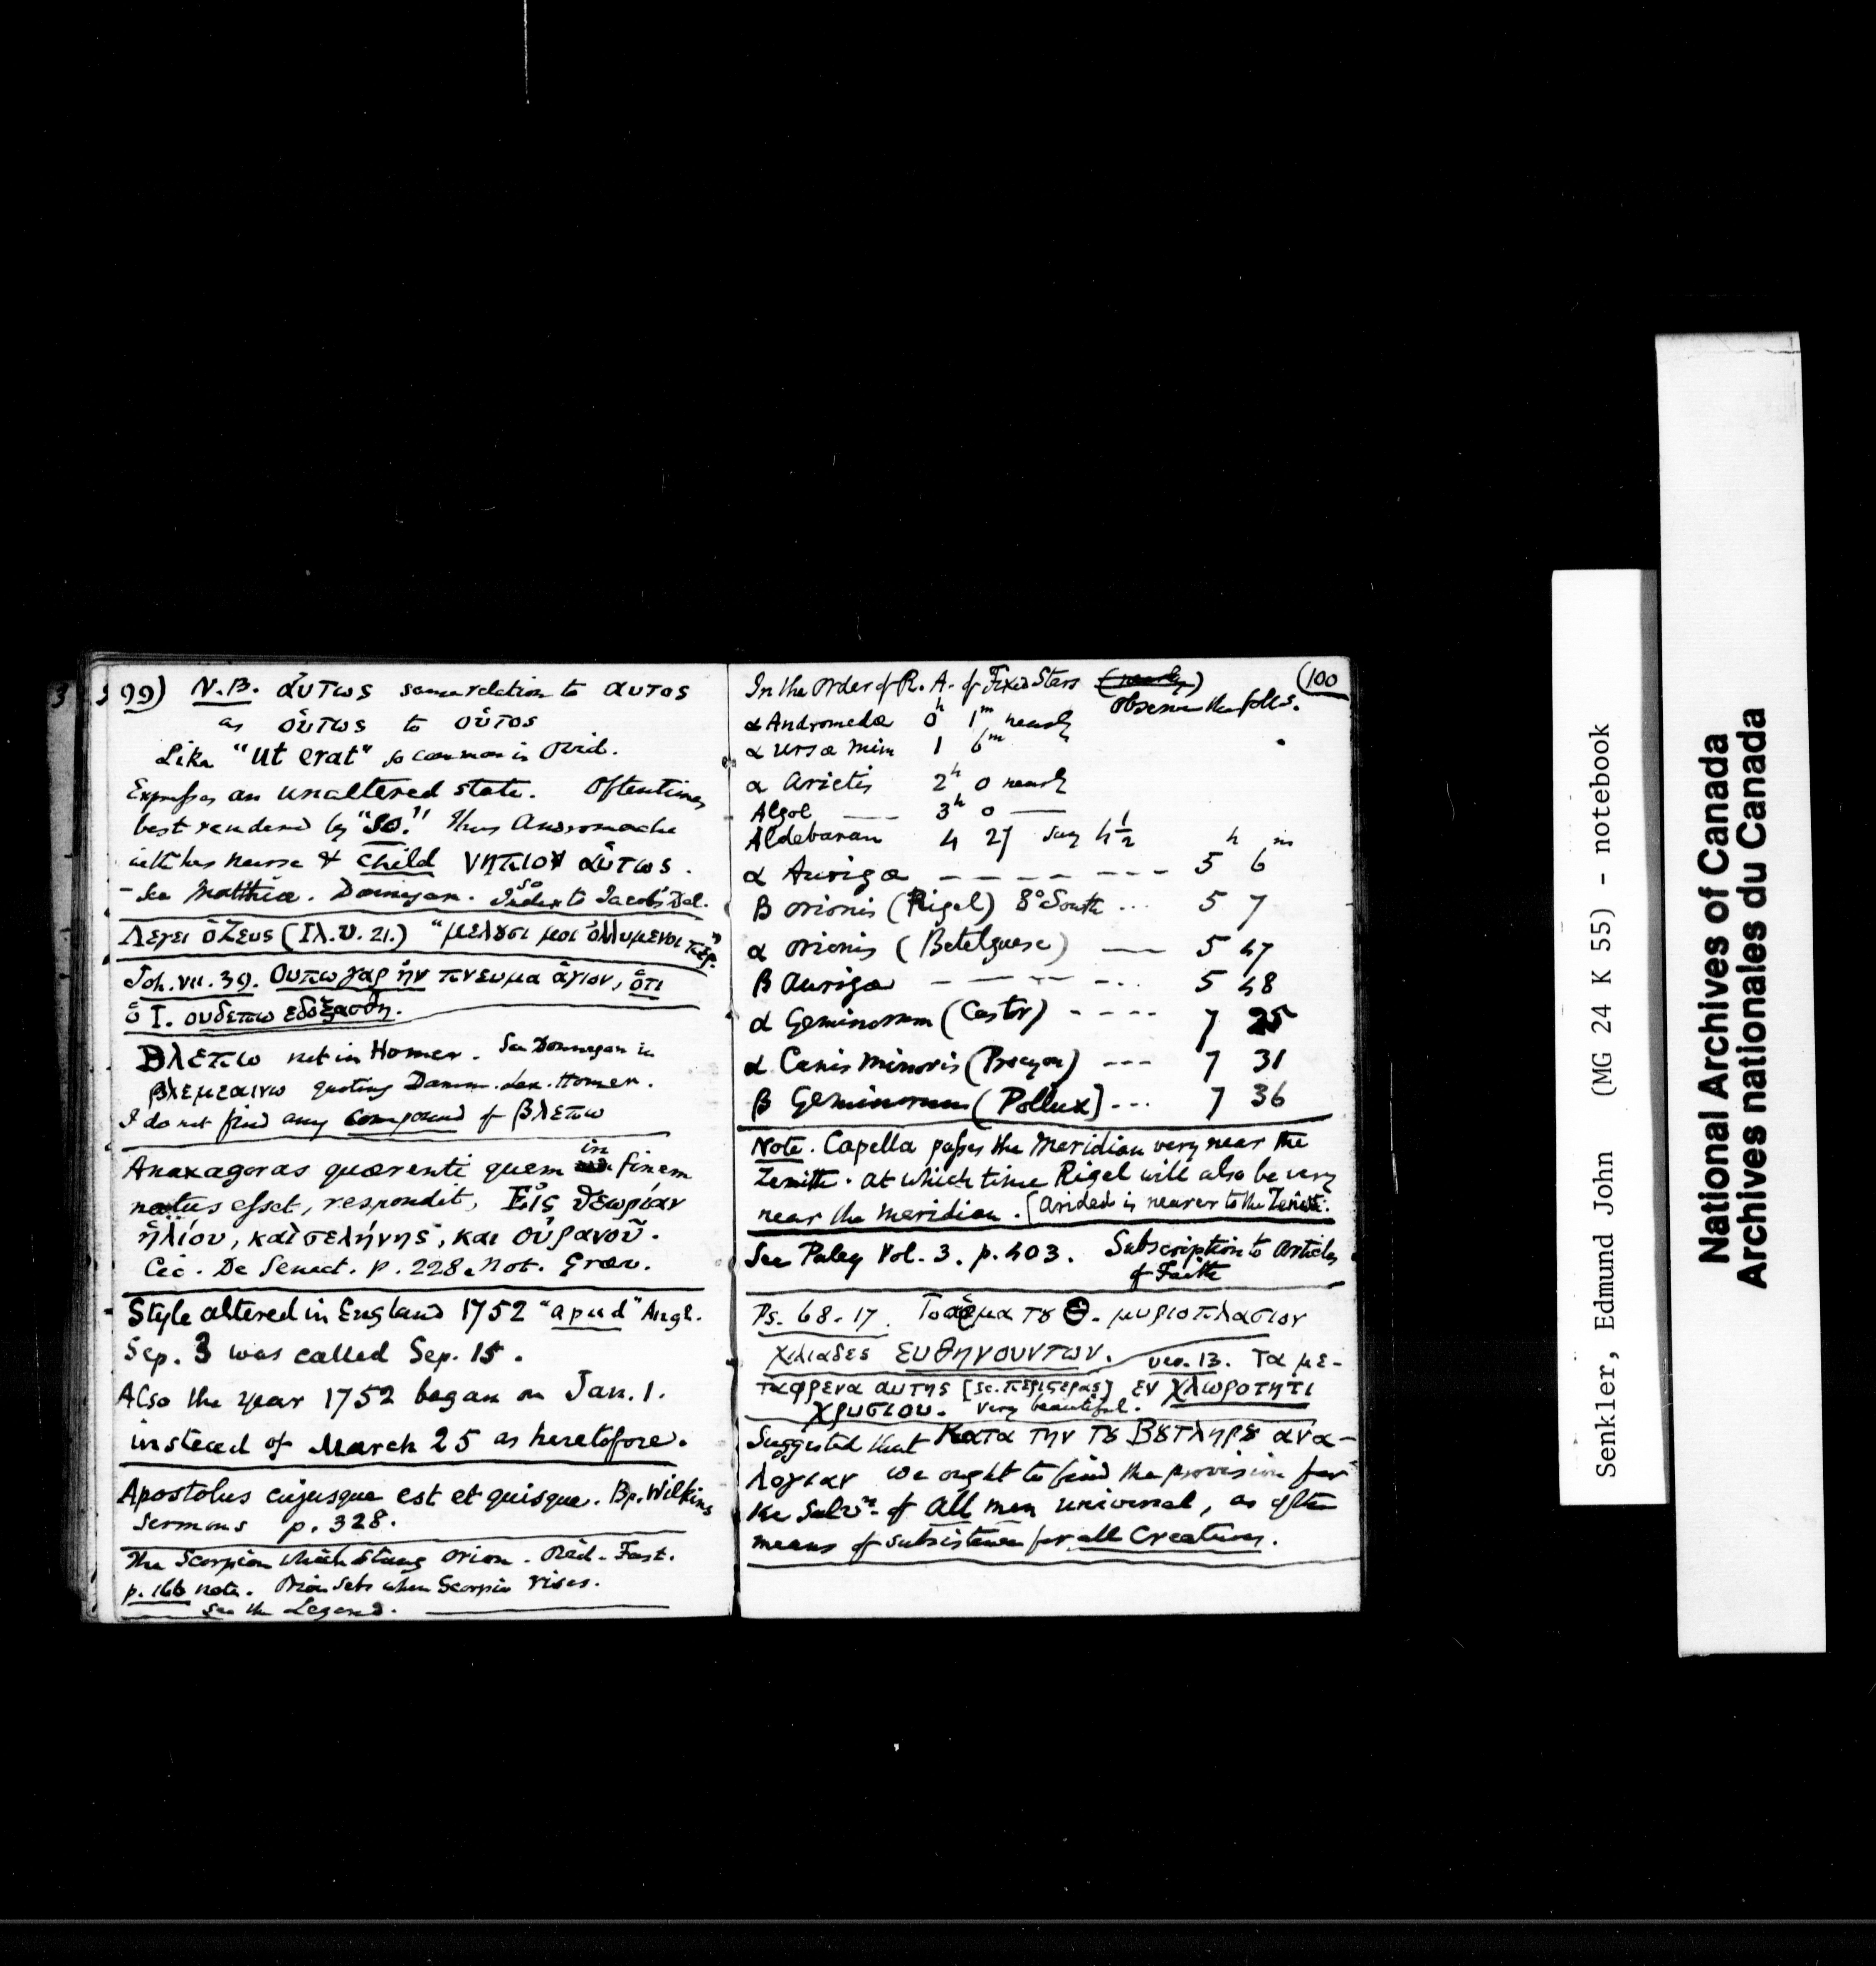 99) N.B. αὔτως same relation to αυτος
as οὕτως to οὗτος
Like "ut erat" so common in Ovid.
Expresses an unaltered state. Oftentimes
best rendered by "so." Thus Andromache
with her nurse & child νηπιον αὔτως.
- See Matthiæ. Donnegan. So Index to Jacobs' Del.
Λεγει ὁ Ζευς (Ιλ. υ. 21.) "μελȣσι μοι ὀλλυμενοι περ."
Joh. vii. 39. Ουπω γαρ ἠν πνευμα ἁγιον, ὁτι
ὁ Ι. ουδεπω εδοξασθη.
Βλεπω not in Homer. See Donnegan in
βλεμεαινω quoting Damm. Lex. Homer.
I do not find any compound of βλεπω
Anaxagoras quærenti quem in finem
natus esset, respondit, Εἰς θεωρίαν
ἡλίου, καὶ σελήνης, και οὐρανοῦ.
Cic. De Senect. p. 228. Not. Græv.
Style altered in England 1752 "apud" Angl.
Sep. 3 was called Sep. 15.
Also the year 1752 began on Jan. 1.
instead of March 25 as heretofore.
Apostolus cujusque est et quisque. Bp. Wilkins
Sermons p. 328.
The Scorpion which stung Orion. Ovid. Fast.
p. 166 note. Orion sets when Scorpio rises.
see the Legend.
(100
In the order of R. A. of Fixed Stars (nearly)
Observe the folls.
α Andromedæ 0h 1m nearly
α Ursæ Min 1 6m
α Arietis 2h 0 nearly
Algol — 3h 0 —
Aldebaran 4 27 say 4½ h m
α Aurigæ - - - - - - - 5 6
β Orionis (Rigel) 8° South ... 5 7
α Orionis (Betelguese) — 5 47
β Aurigæ - - - - - ... 5 48
α Geminorum (Castor) - - - - 7 25
α Canis Minoris (Procyon) --- 7 31
β Geminorum (Pollux) --- 7 36
Note. Capella passes the Meridian very near the
Zenith. at which time Rigel will also be very
near the meridian. [Arided is nearer to the Zenith.
See Paley Vol. 3. p. 403. Subscription to Articles
of Faith
Ps. 68. 17. Το ἁρμα τȣ Θ. μυριοπλασιον
χιλιαδες ευθηνουντων. ver. 13. Τα με-
ταφρενα αυτης [sc. περιστερας] εν χλωροτητι
χρυσιου. very beautiful.
Suggested that Κατα την τȣ Βȣτληρȣ ανα-
λογιαν we ought to find the provision for
the Salvn. of all men universal, as often
means of subsistence for all Creatures.
Senkler, Edmund John (MG 24 K 55) - notebook
National Archives of Canada
Archives nationales du Canada